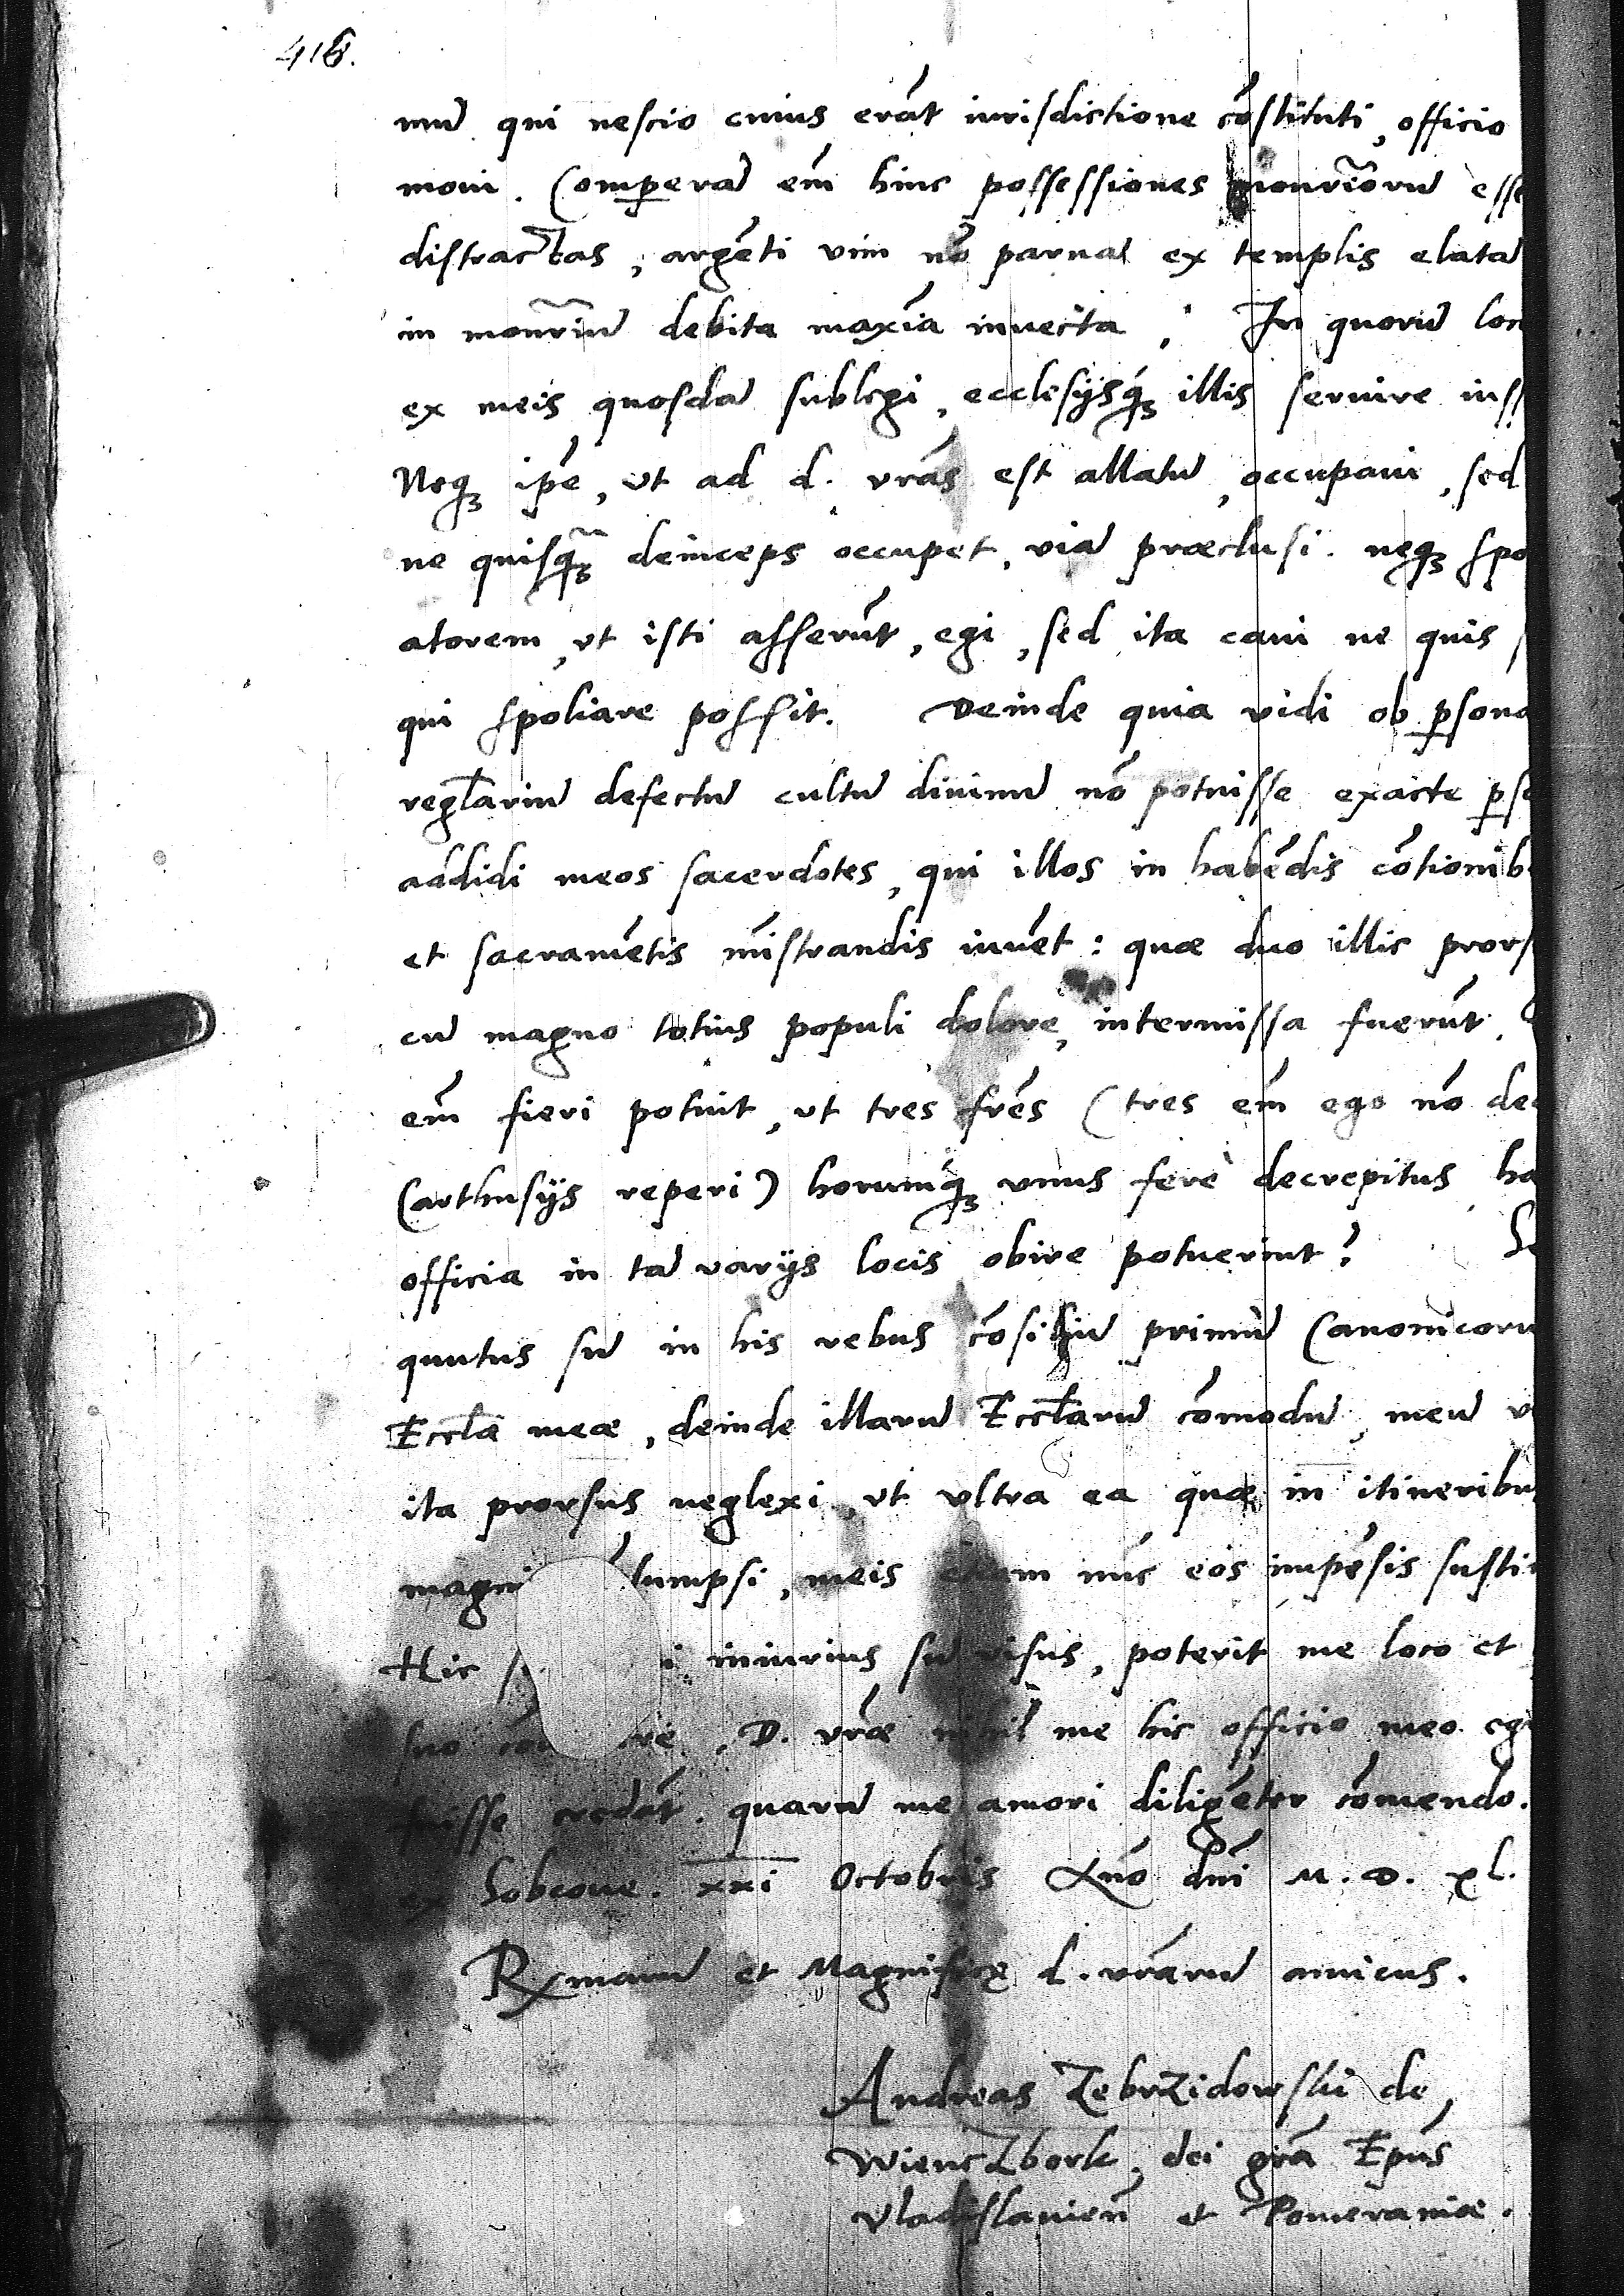 416.
mũ qui nescio cuius erãt iurisdictione cõstituti, officio
moui. Comperã em̃ hinc possessiones monrĩorũ esse
distractas, argẽti vim nõ paruã ex templis elatã
in monrĩũ debita maxĩa inuecta, In quorũ lon
ex meis quosdã sublegi, ecclesijsq́ꝫ illis seruire iuss
Neqꝫ ip̃e, vt ad d. vrãs est allatũ, occupaui, sed
ne quisq̃ꝫ deinceps occupet, viã præclusi. neqꝫ spo
atorem, vt isti asserũt, egi, sed ita caui ne quis s
qui spoliare possit. Deinde quia vidi ob ꝑsona
regl̃ariũ defectũ cultũ diuinũ nõ potuisse exacte ꝑso
addidi meos sacerdotes, qui illos in habẽdis cõtionib
et sacramẽtis mĩstrandis iuuẽt: quæ duo illic prors
cũ magno totius populi dolore, intermissa fuerũt.
em̃ fieri potuit, vt tres frẽs (tres em̃ ego nõ dec
Carthusijs reperi) horumq́ꝫ vnus ferè decrepitus ha
officia in tã varijs locis obire potuerint? Se
quutus sũ in his rebus cõsiliũ primũ Canonicorũ
Eccl̃æ meæ, deinde illarũ Eccl̃arũ cõmodũ, meũ v
ita prorsus neglexi, vt vltra ea quæ in itineribus
magni sumpsi, meis etiam nũc eos impẽsis susti
Hic s i iniurius sũ visus, poterit me loco et
suo cõu re. D. vrãe nihil me hic officio meo eg
fuisse credãt. quarũ me amori diligẽter cõmendo.
ex Sobcoue. xxi Octobris Ãno dñi M. D. xl.
Rxmarũ et Magnificæ d. vrãrũ amicus.
Andreas Zebrzidowski de
Wienczbork, dei grã Ep̃us
Vladislauieñ et Pomeraniæ.